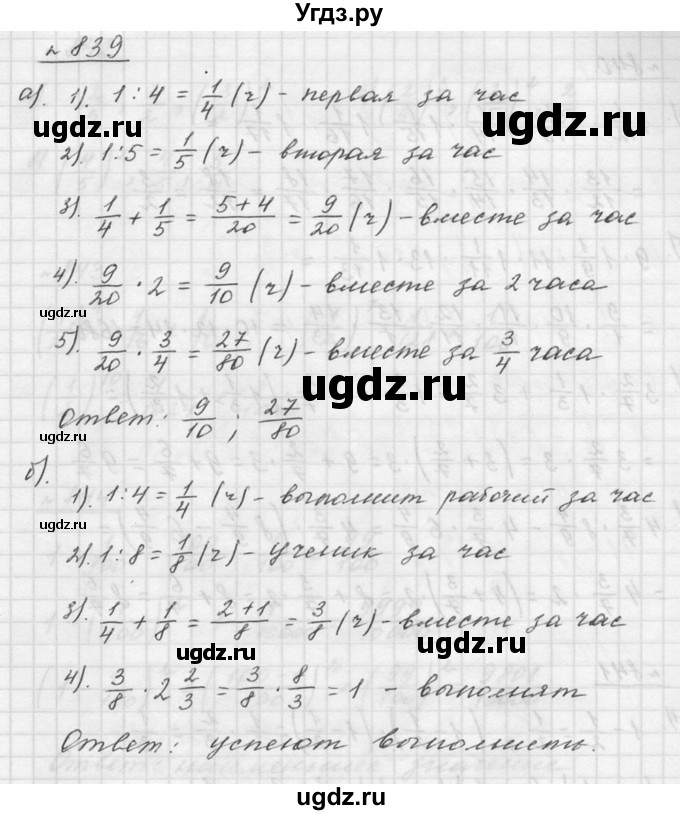 Угдз.ру
№ 839
а). 1). 1 : 4 = 1/4 (ч) - первая за час
2). 1 : 5 = 1/5 (ч) - вторая за час
3). 1/4 + 1/5 = (5+4)/20 = 9/20 (ч) - вместе за час
4). 9/20 · 2 = 9/10 (ч) - вместе за 2 часа
5). 9/20 · 3/4 = 27/80 (ч) - вместе за 3/4 часа
Ответ: 9/10 ; 27/80
б).
1). 1 : 4 = 1/4 (ч) - выполнит рабочий за час
2). 1 : 8 = 1/8 (ч) - ученик за час
3). 1/4 + 1/8 = (2+1)/8 = 3/8 (ч) - вместе за час
4). 3/8 · 2 2/3 = 3/8 · 8/3 = 1 - выполнят
Ответ: успеют выполнить.
ugdz.ru
ugdz.ru
ugdz.ru
ugdz.ru
ugdz.ru
ugdz.ru
ugdz.ru
ugdz.ru
ugdz.ru
ugdz.ru
ugdz.ru